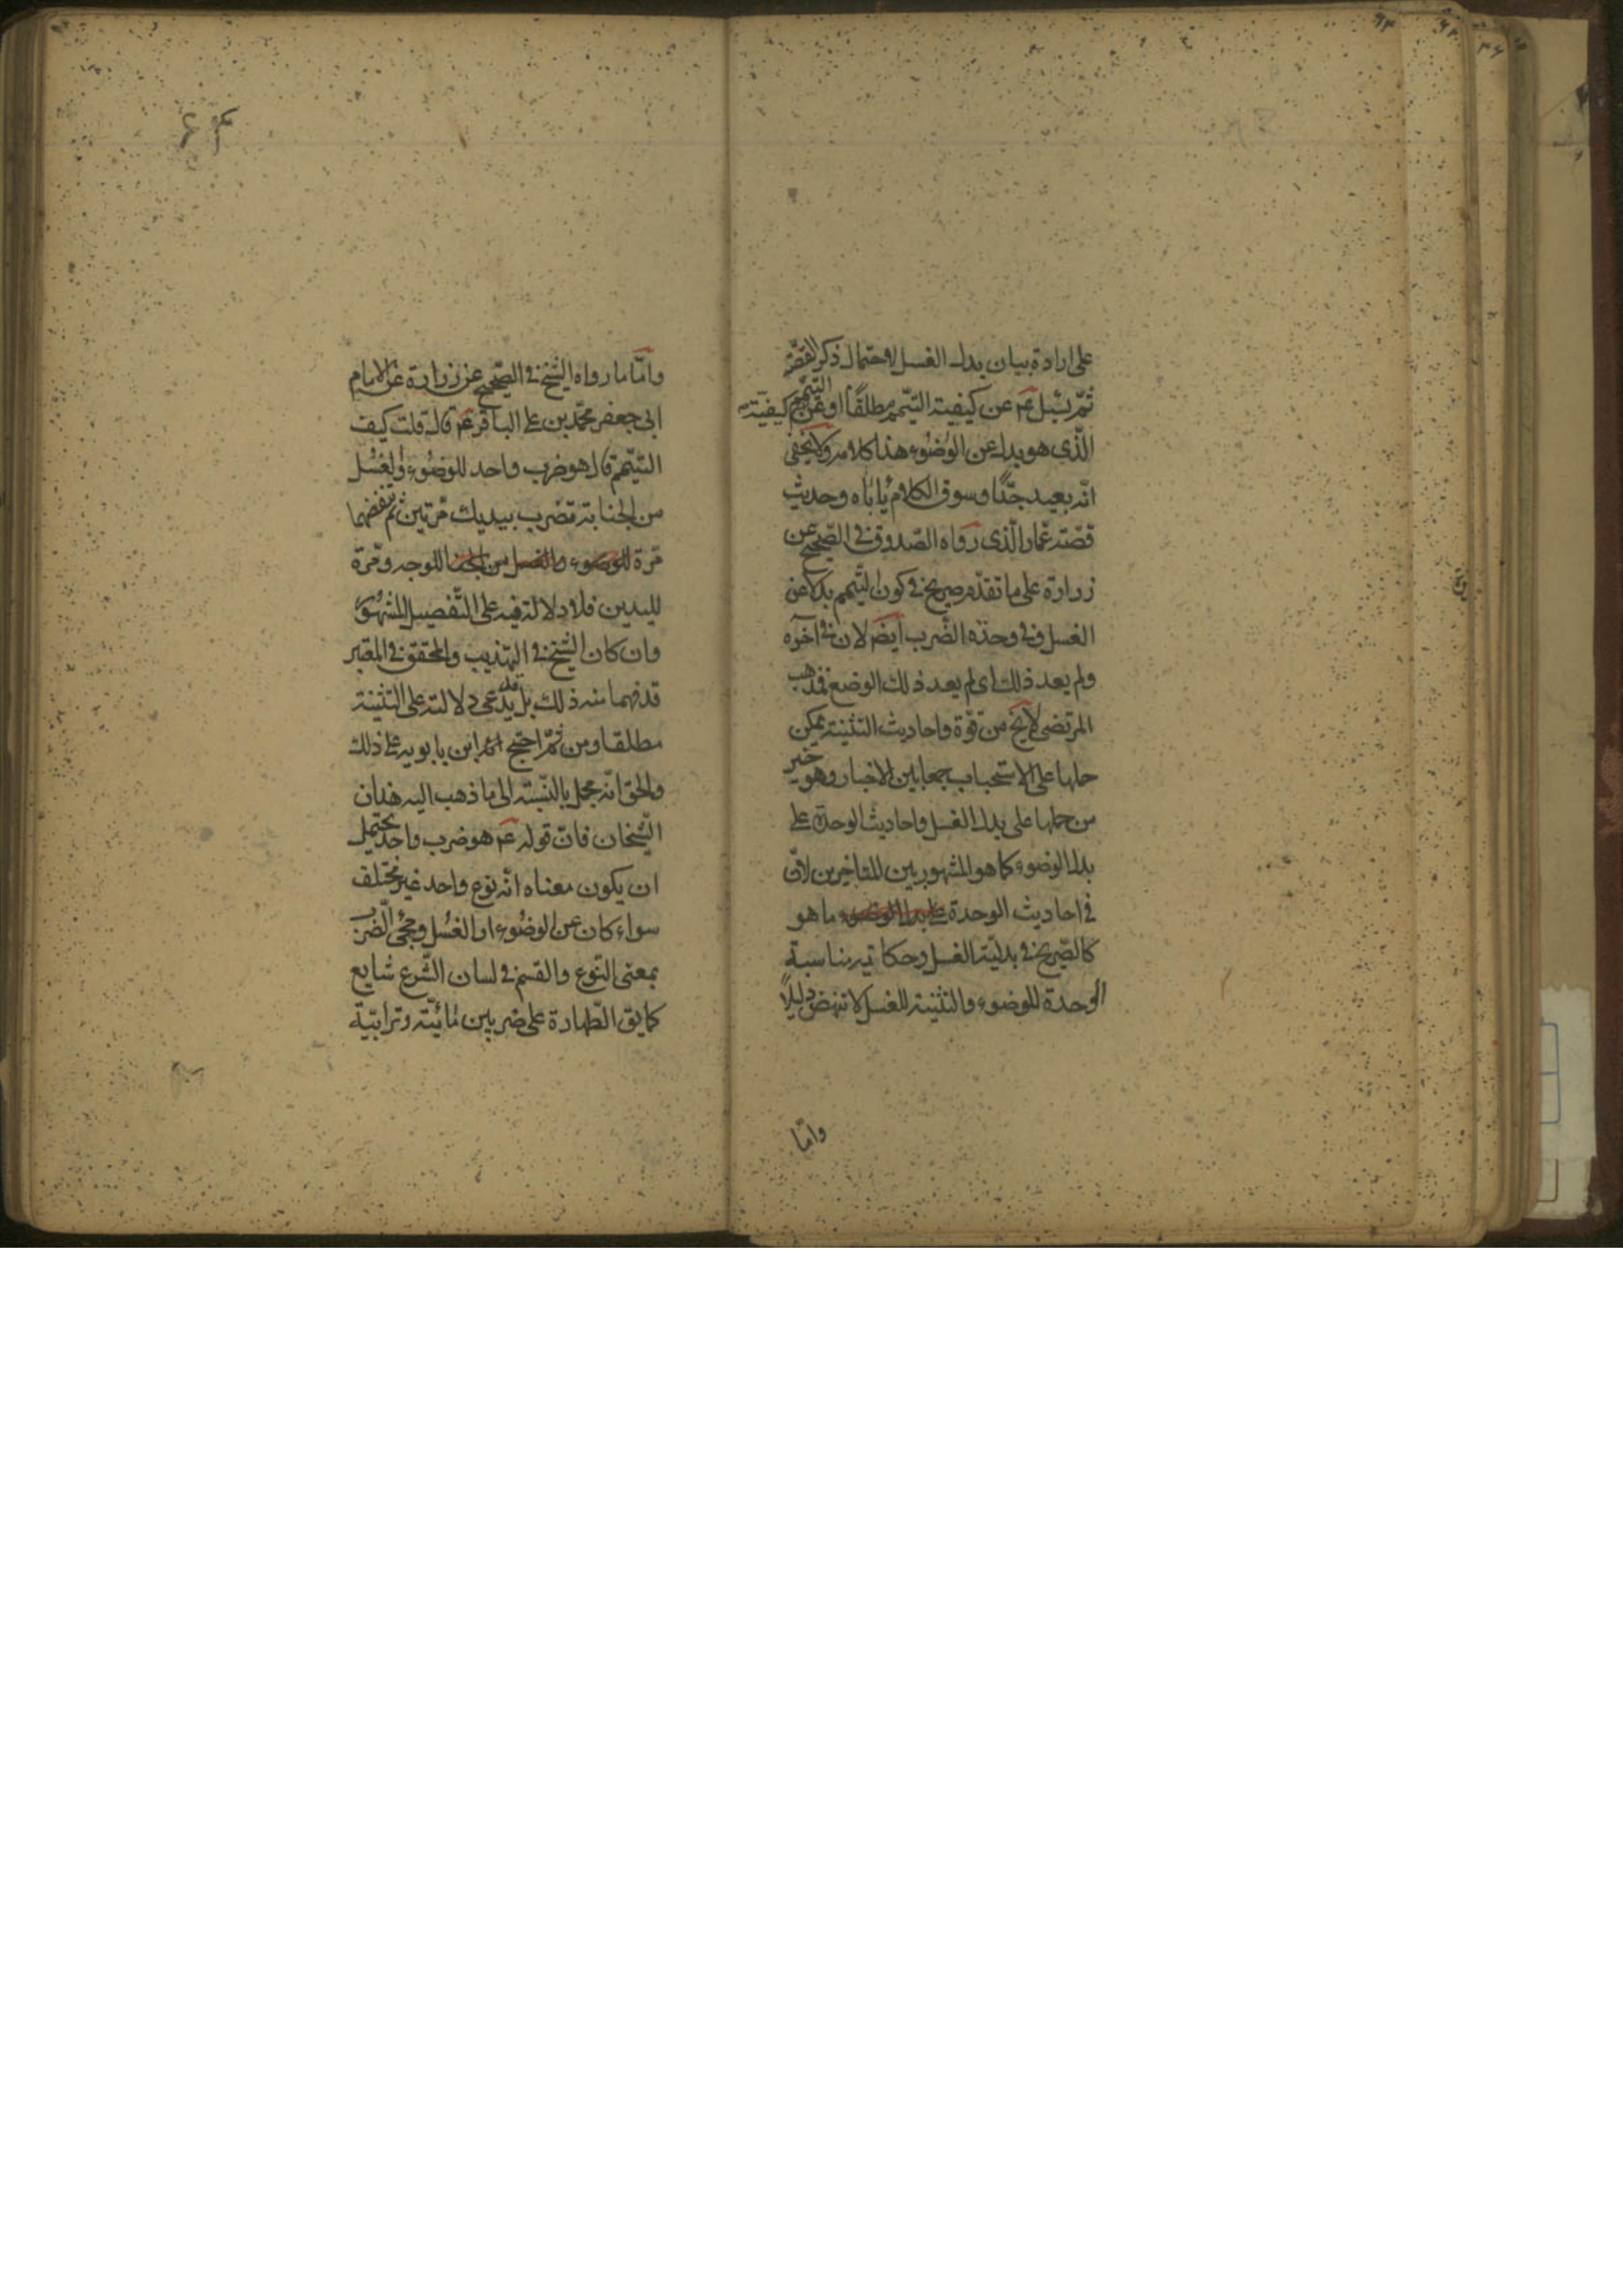 على ارادة بيان بدل الغسل لاحتمال ذكر القصة
ثم سئل عم عن كيفية التيمم مطلقا او عن كيفية التيمم
الذي هو بدل عن الوضوء هذا كلامه ولا يخفى
انه بعيد جدا وسوق الكلام ياباه وحديث
قصة عمار الذي رواه الصدوق في الصحيح عن
زرارة على ما تقدم صريح في كون التيمم بدلا عن
الغسل وفي وحدة الضرب ايض لان في آخره
ولم يعد ذلك اى لم يعد ذلك الوضع فمذهب
المرتضى لا يخ من قوة واحاديث التثنية يمكن
حملها على الاستحباب جمعا بين الاخبار وهو خير
من حملها على بدل الغسل واحاديث الوحدة على
بدل الوضوء كما هو المشهور بين المتاخرين لان
في احاديث الوحدة على بدل الوضوء ما هو
كالصريح في بدلية الغسل وحكاية مناسبة
الوحدة للوضوء والتثنية للغسل لا تنهض دليلا
واما
واما ما رواه الشيخ في الصحيح عن زرارة عن الامام
ابى جعفر محمد بن على الباقر عم قال قلت كيف
التيمم قال هو ضرب واحد للوضوء والغسل
من الجنابة تضرب بيديك مرتين ثم تنفضهما
مرة للوضوء والغسل من للوجه ومرة
لليدين فلا دلالة فيه على التفصيل المشهور
وان كان الشيخ في التهذيب والمحقق في المعتبر
قد فهما منه ذلك بل قد يدعى دلالته على التثنية
مطلقا ومن ثم احتج ابن بابويه على ذلك
والحق انه مجمل بالنسبة الى ما ذهب اليه هذان
الشيخان فان قوله عم هو ضرب واحد يحتمل
ان يكون معناه انه نوع واحد غير مختلف
سواء كان عن الوضوء او الغسل ومجئ الضرب
بمعنى النوع والقسم في لسان الشرع شايع
كما يق الطهارة على ضربين مائية وترابية